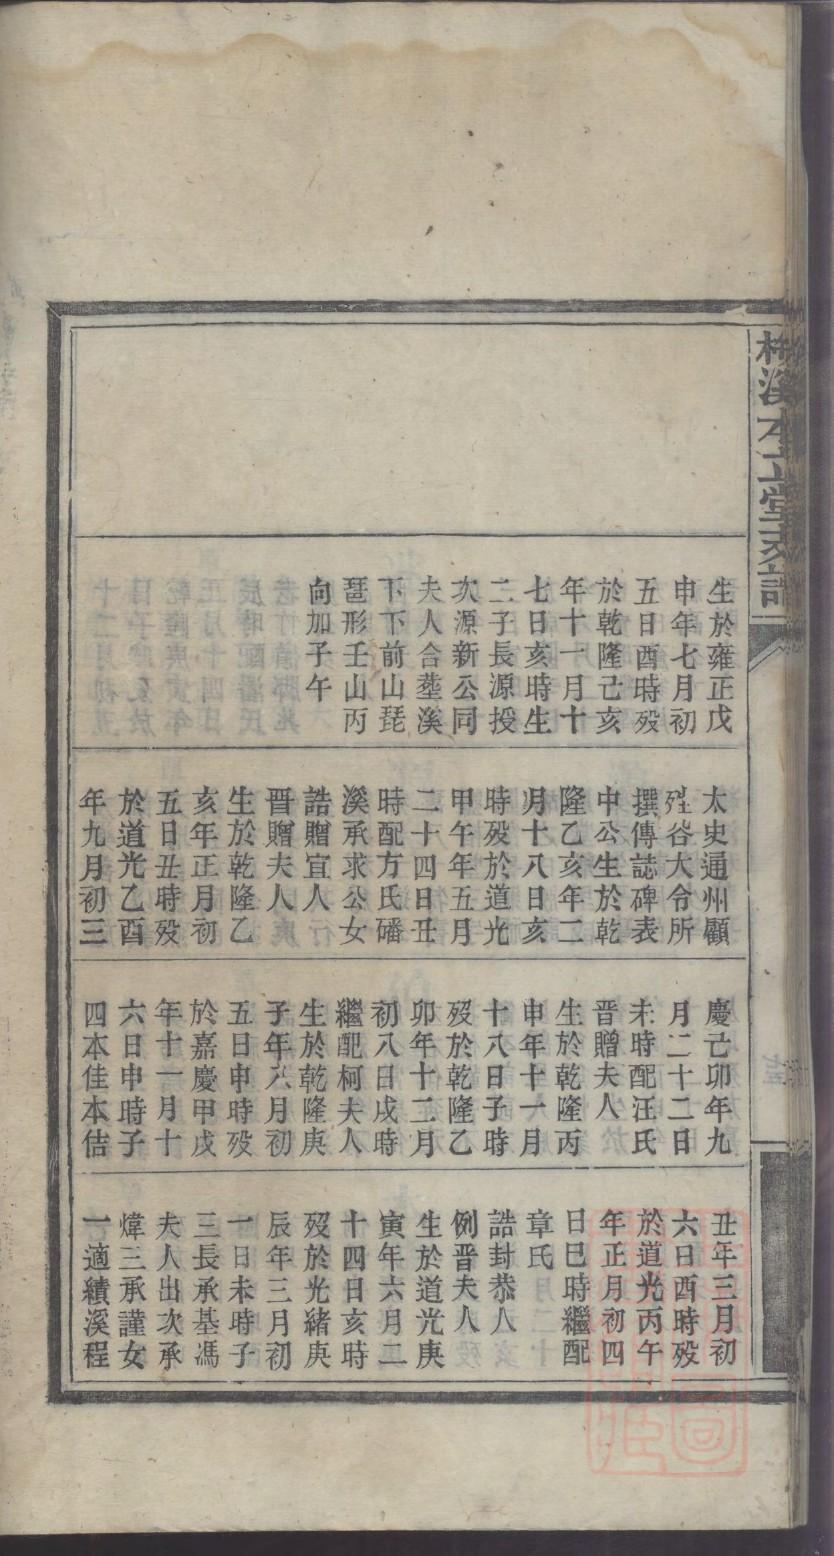 生於雍正戊
申年七月初
五日酉時歿
於乾隆己亥
年十一月十
七日亥時生
二子長源授
次源新公同
夫人合塟溪
下下前山琵
琶形壬山丙
向加子午
太史通州顧
大令所
撰傳誌碑表
中公生於乾
隆乙亥年二
月十八日亥
時歿於道光
甲午年五月
二十四日丑
時配方氏磻
溪承求公女
誥贈宜人
晋贈夫人
生於乾隆乙
亥年正月初
五日丑時歿
於道光乙酉
年九月初三
慶己卯年九
月二十二日
未時配汪氏
晋贈夫人
生於乾隆丙
申年十一月
十八日子時
歿於乾隆乙
卯年十二月
初八日戌時
繼配柯夫人
生於乾隆庚
子年六月初
五日申時歿
於嘉慶甲戌
年十一月十
六日申時子
四本佳本佶
丑年三月初
六日酉時歿
於道光丙午
年正月初四
日巳時繼配
章氏
誥封恭人
例晋夫人
生於道光庚
寅年六月二
十四日亥時
歿於光緒庚
辰年三月初
一日未時子
三長承基馮
夫人出次承
煒三承謹女
一適績溪程